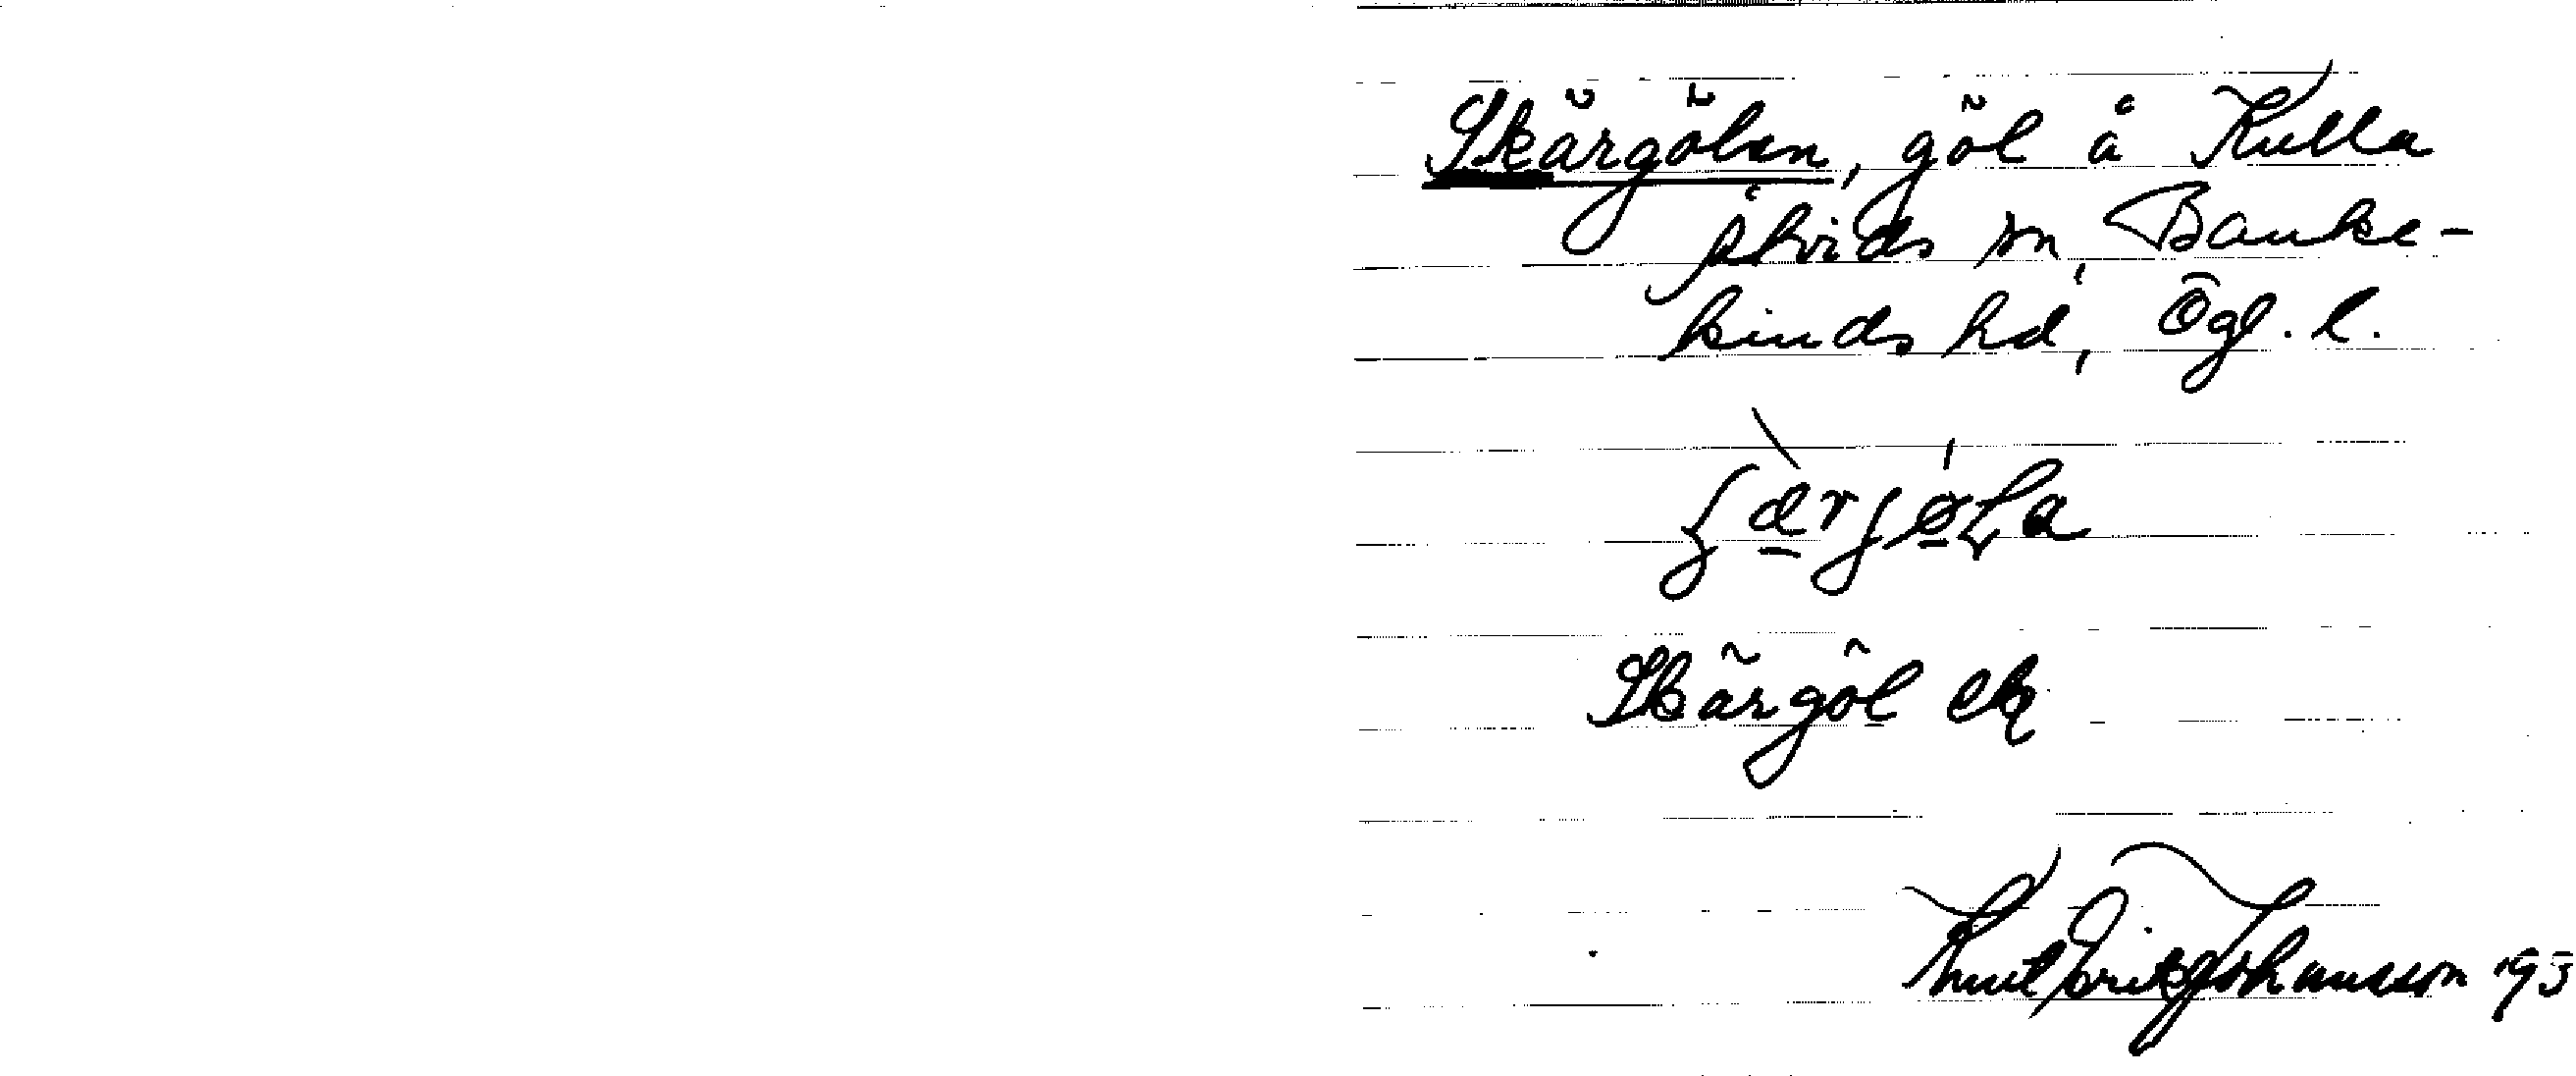 Skärgölen, göl å Kulla
Åtvids sn, Banke-
kinds hd, Ögl. l.
Skärgöl ek
Knut Erik Johansson 193